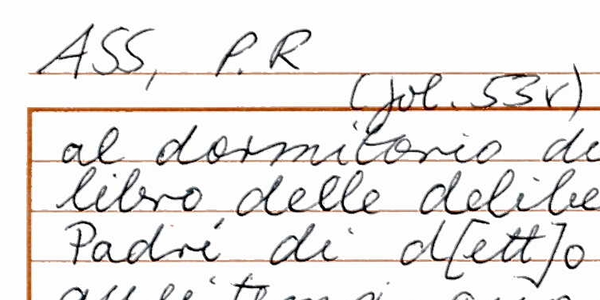 ASS, P.R
(fol. 53r)
al dormitorio de
libro delle delibe
Padri di d[ett]o